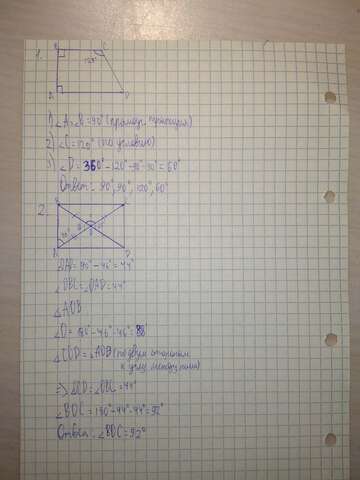 1.
B C
120°
A D
1) ∠A=∠B=90° (прямоуг. трапеция)
2) ∠C=120° (по условию)
3) ∠D=360°-120°-90°-90°=60°
Ответ: 90°, 90°, 120°, 60°
2.
A D
∠OAD=90°-46°=44°
∠OBC=∠OAD=44°
∠AOB
∠O=180°-46°-46°=88°
∠COD=∠AOB (по двум сторонам
к углу между ними)
=> ∠ =∠OBC=44°
∠BOC=180°-44°-44°=92°
Ответ: ∠BOC=92°